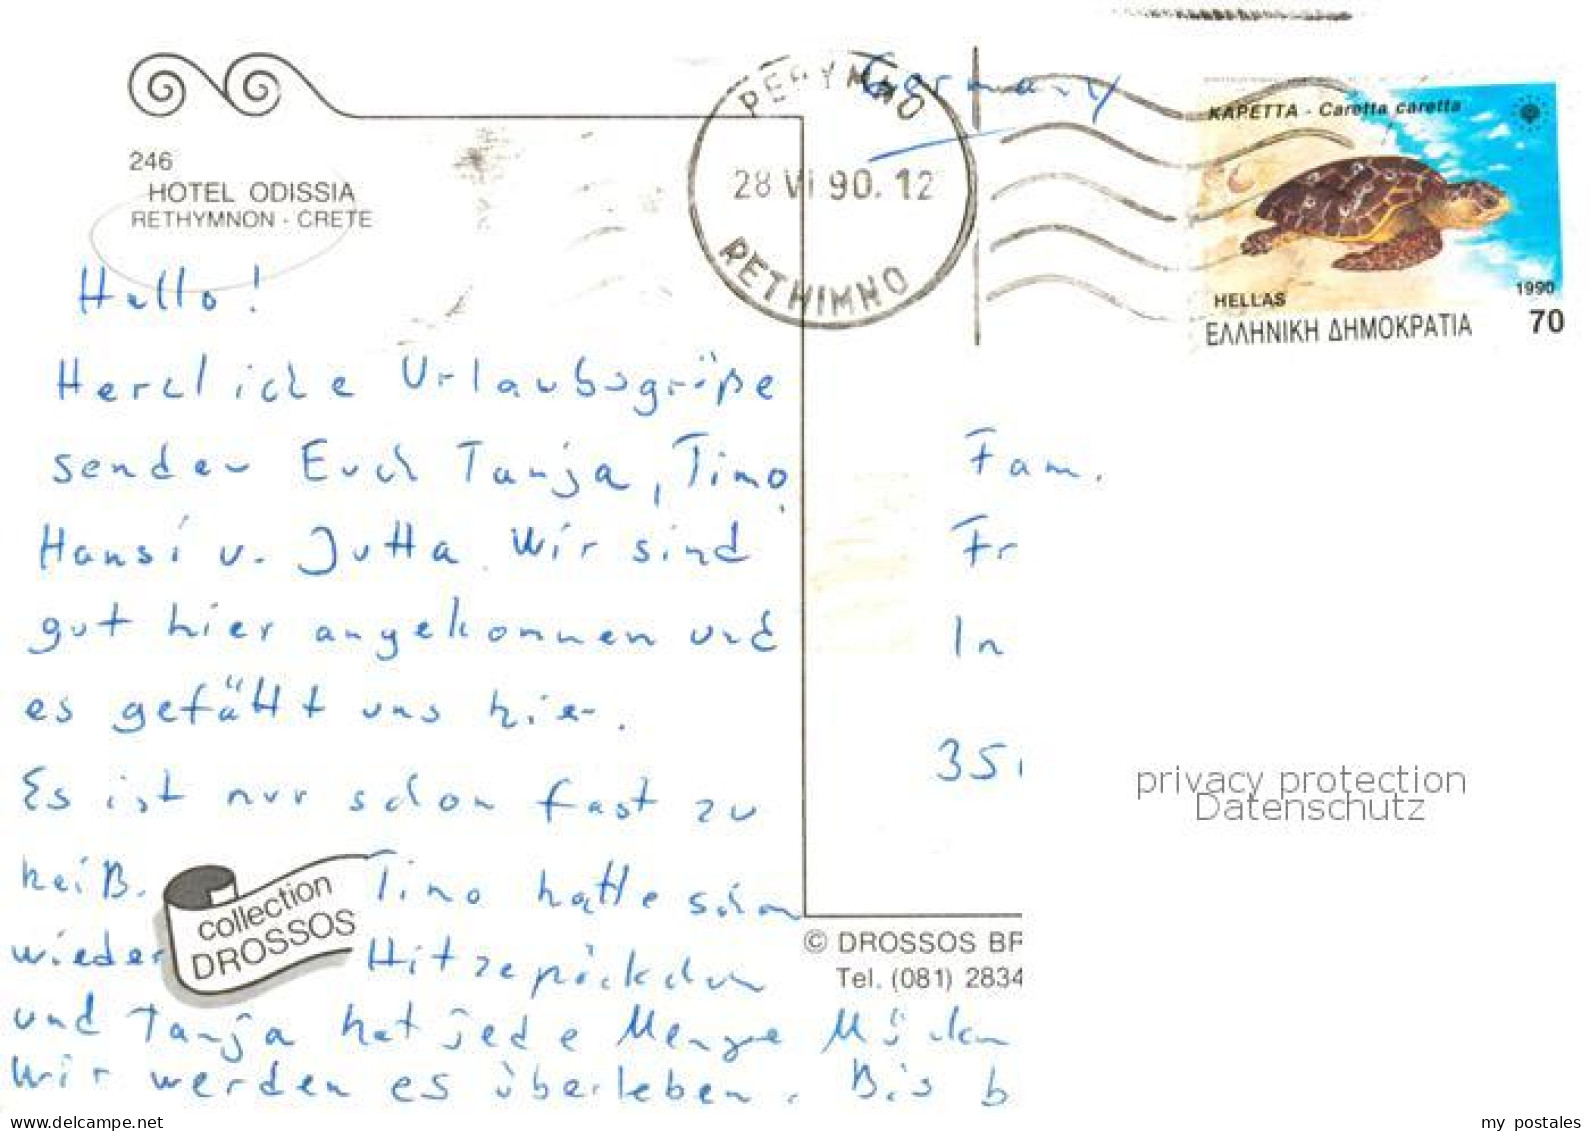 Germany
ΡΕΘΥΜΝΟ
28 VI 90. 12
RETHIMNO
ΚΑΡΕΤΤΑ - Caretta caretta
HELLAS
1990
ΕΛΛΗΝΙΚΗ ΔΗΜΟΚΡΑΤΙΑ 70
246
HOTEL ODISSIA
RETHYMNON - CRETE
Hallo!
Herzliche Urlaubsgrüße
senden Euch Tanja, Timo,
Hansi u. Jutta. Wir sind
gut hier angekommen und
es gefällt uns hier.
Es ist nur schon fast zu
heiß. Timo hatte schon
wieder Hitzepöckchen
und Tanja hat jede Menge Mücken
Wir werden es überleben. Bis b
collection
DROSSOS
Fam.
Fr
In
35
privacy protection
Datenschutz
© DROSSOS BR
Tel. (081) 2834
my postales
delcampe.net